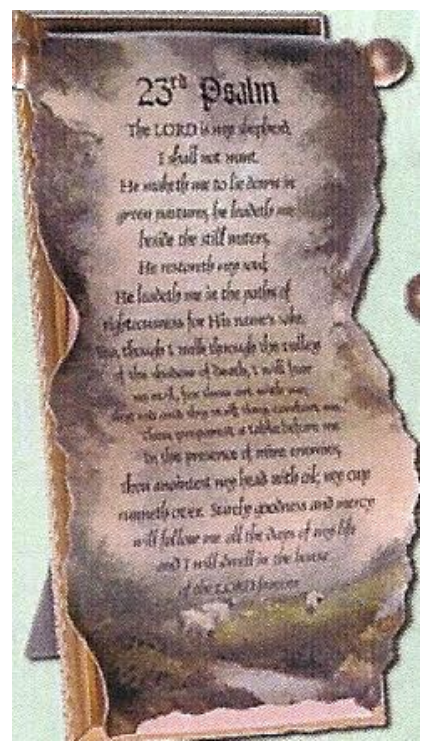 23rd Psalm
The LORD is my shepherd,
I shall not want.
He maketh me to lie down in
green pastures, he leadeth me
beside the still waters,
He restoreth my soul,
He leadeth me in the paths of
righteousness for His name's sake.
Yea, though I walk through the valley
of the shadow of death, I will fear
no evil, for thou art with me,
thy rod and thy staff they comfort me.
Thou preparest a table before me
In the presence of mine enemies,
thou anointest my head with oil; my cup
runneth over. Surely goodness and mercy
will follow me all the days of my life
and I will dwell in the house
of the LORD forever